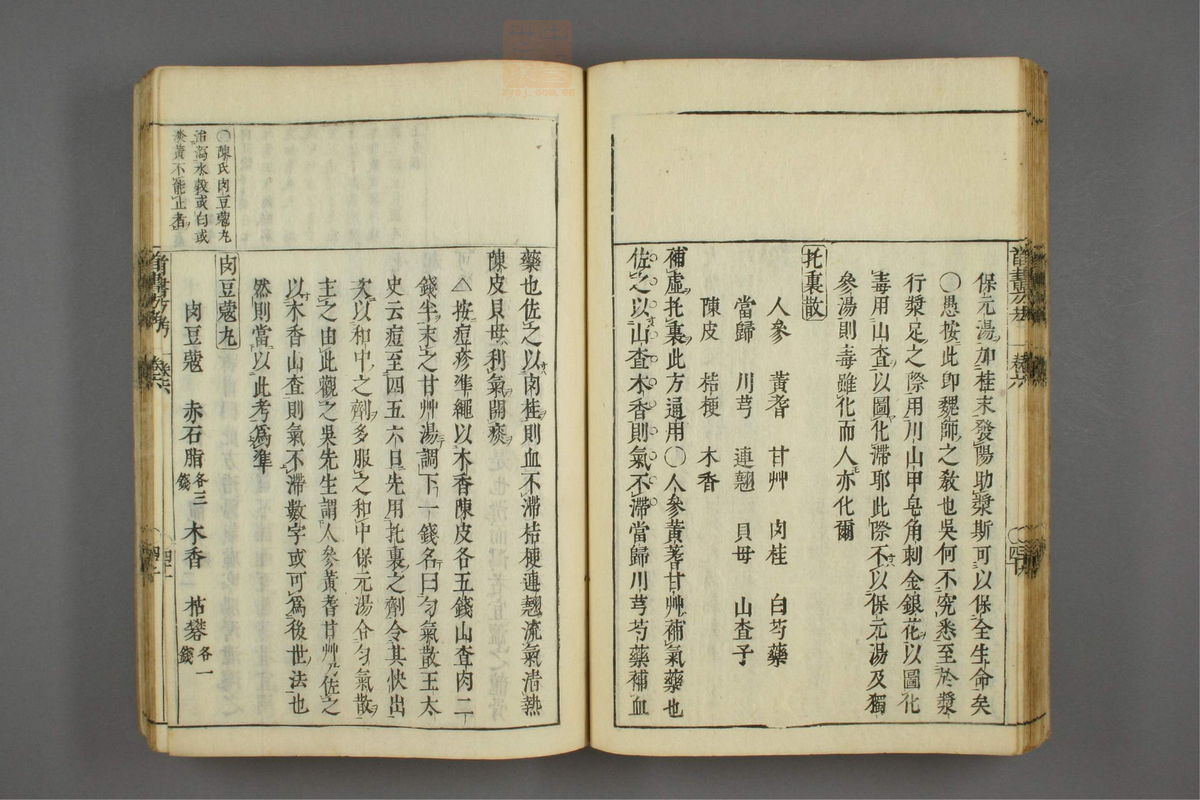 保元湯加桂末發陽助漿斯可以保全生命矣
〇愚按此卽魏師之敎也吳何不究悉至於漿
行漿足之際用川山甲皂角刺金銀花以圖化
毒用山查以圖化滯耶此際不以保元湯及獨
參湯則毒雖化而人亦化爾
托裏散
人參 黃耆 甘艸 肉桂 白芍藥
當歸 川芎 連翹 貝母 山查子
陳皮 桔梗 木香
補虛托裏此方通用〇人參黃耆甘艸補氣藥也
佐之以山查木香則氣不滯當歸川芎芍藥補血
藥也佐之以肉桂則血不滯桔梗連翹流氣淸熱
陳皮貝母利氣開痰
△按痘疹準繩以木香陳皮各五錢山查肉二
錢半末之甘艸湯調下一錢名曰勻氣散王太
史云痘至四五六日先用托裏之劑令其快出
次以和中之劑多服之和中保元湯合勻氣散
主之由此觀之吳先生謂人參黃耆甘艸乃佐之
以木香山查則氣不滯數字或可爲後世法也
然則當以此考爲準
〇陳氏肉豆蔻丸
治瀉水穀或白或
淡黃不能止者
肉豆蔻丸
肉豆蔻 赤石脂各三錢 木香 枯礬各一錢